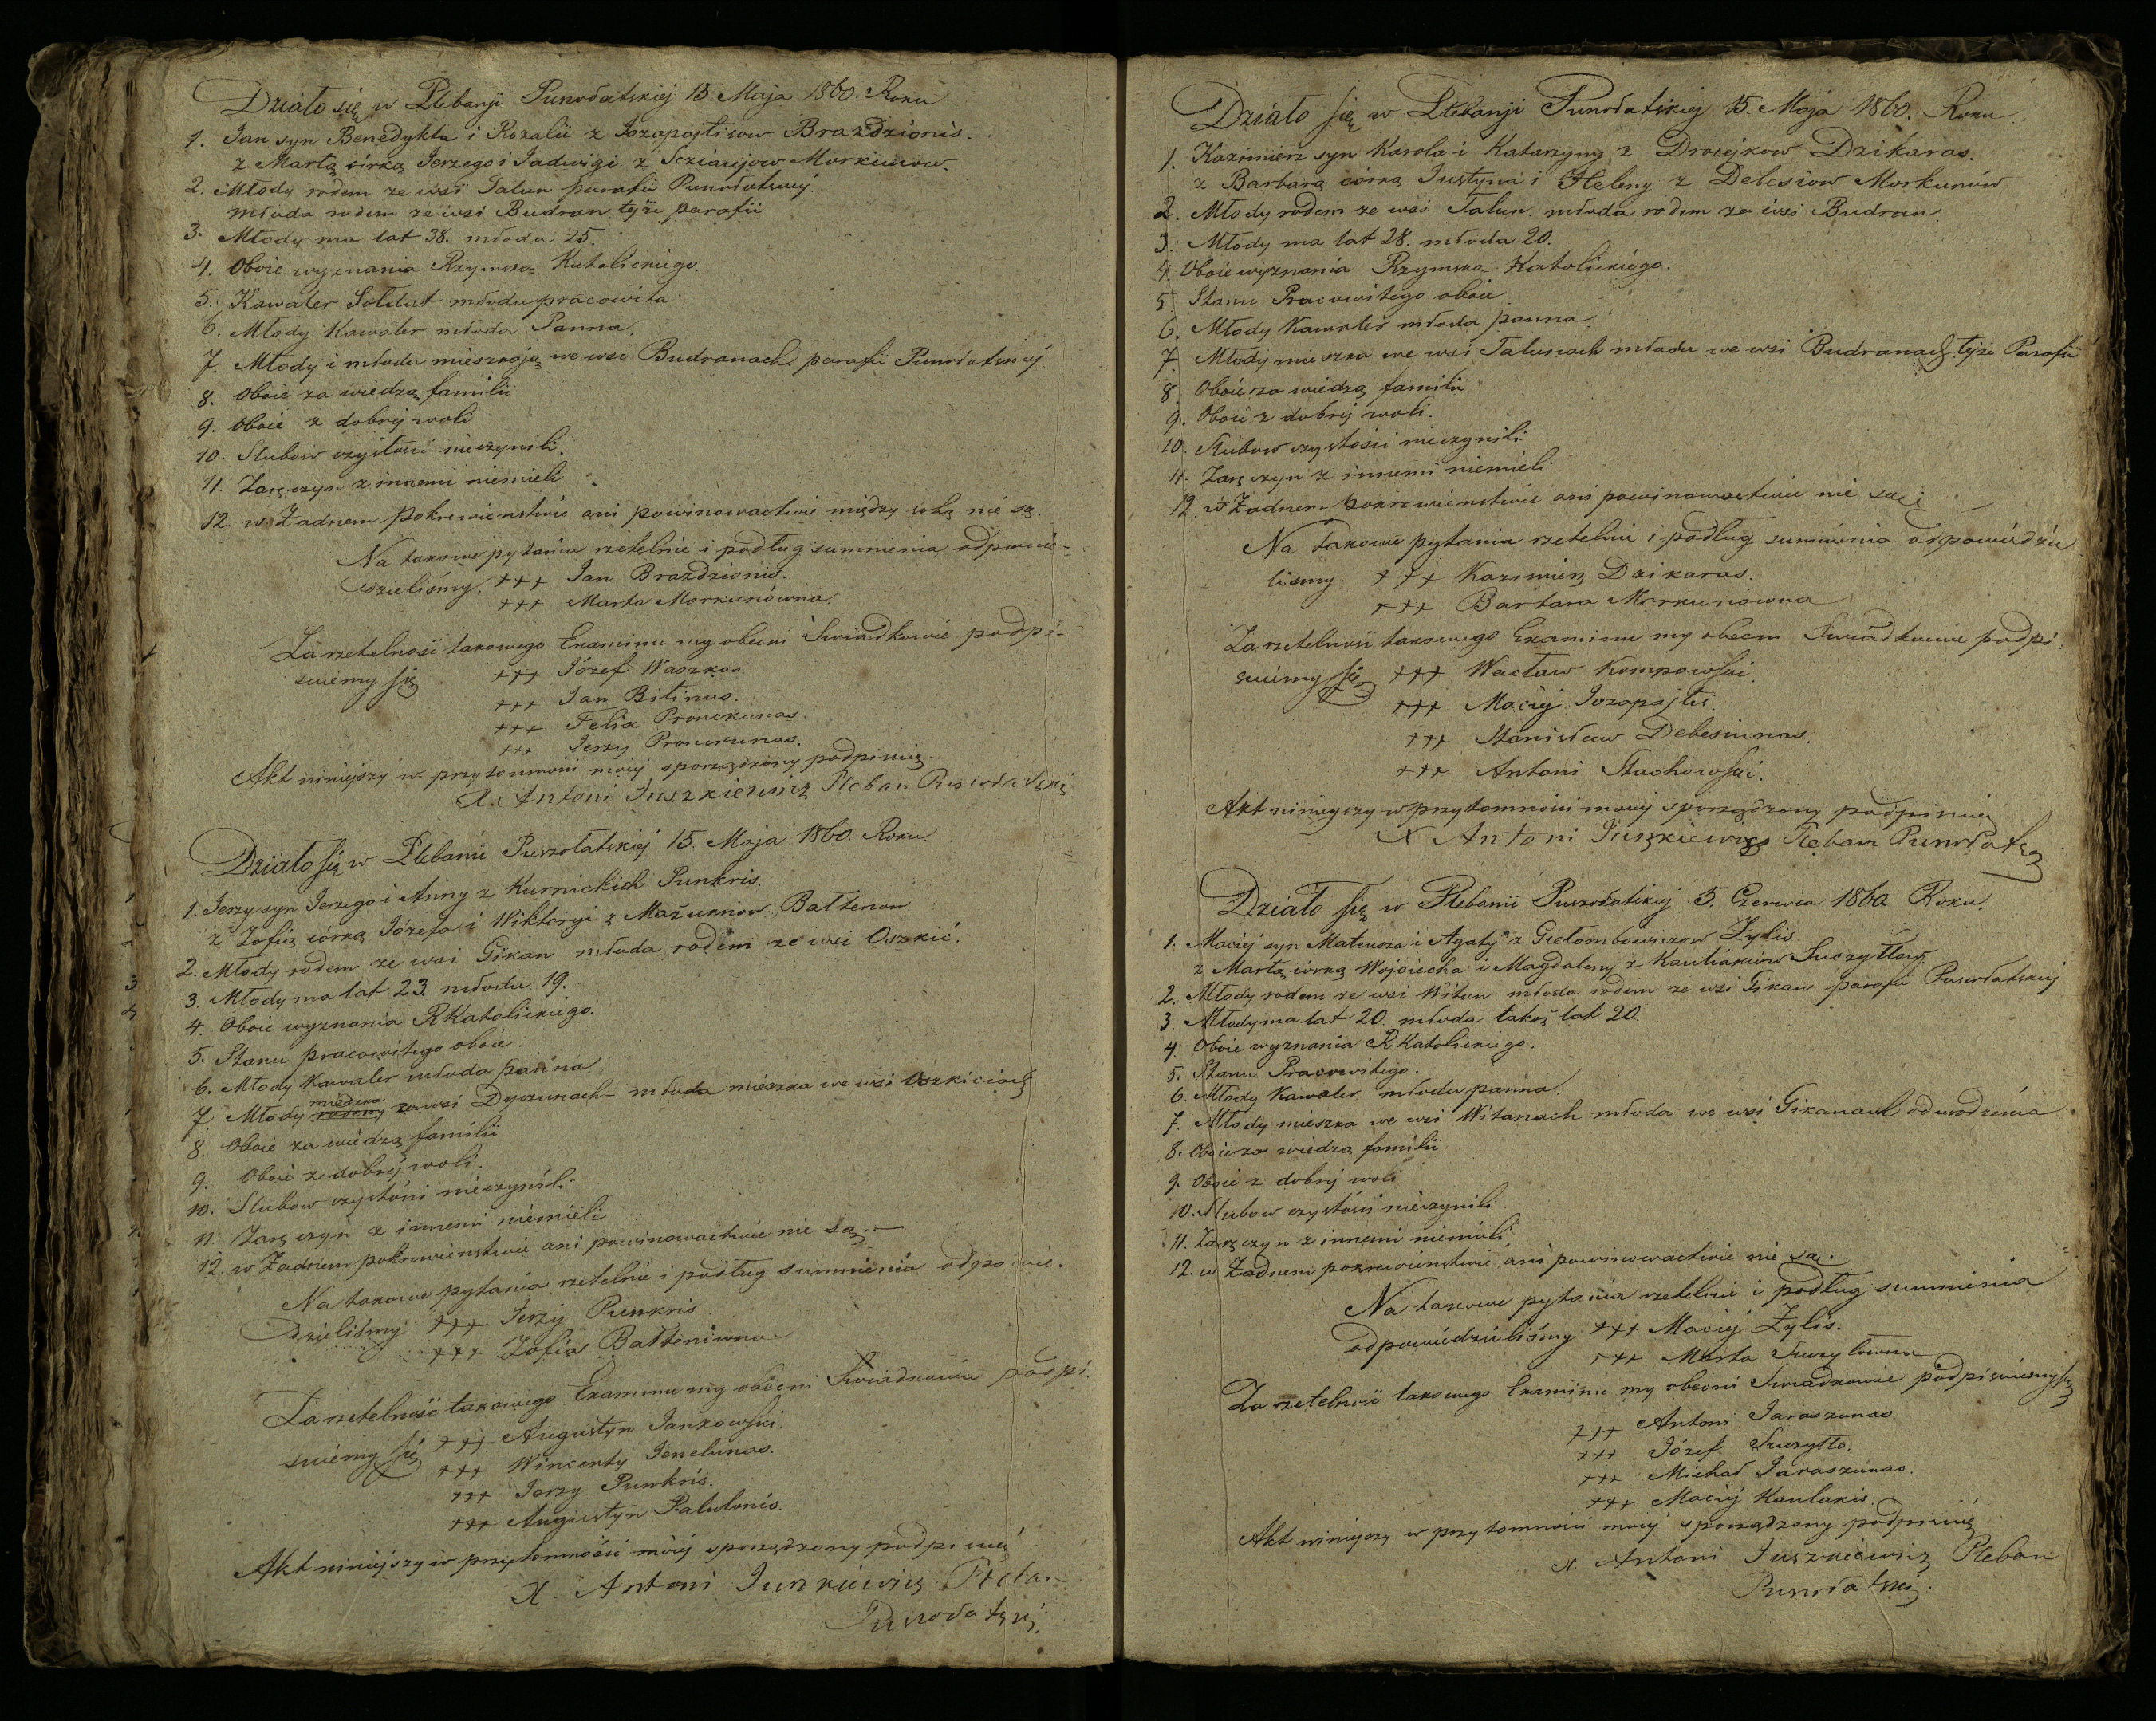 Działo się w Plebanji Puszołatskiéj 15. Maja 1860. Roku
1. Jan syn Benedykta i Rozalii z Jozapajtisow Brazdzionis.
z Martą córką Jerzego i Jadwigi z Morkunow.
2. Młody rodem ze wsi Talun parafii Puszołatskiéj
młoda rodem ze wsi Budran tejże parafii
3. Młody ma lat 38. młoda 25.
4. Oboie wyznania Rzymsko-Katolickiego.
5. Kawaler Sołdat młoda pracowita
6. Młody Kawaler młoda Panna.
7. Młody i młoda mieszkają we wsi Budranach parafii Puszołatskiéj
8. Oboie za wiedzą familii
9. Oboie z dobréj woli
10. Slubow czystości nieczynili.
11. Zaręczyn z innemi niemieli.
12. w Żadnem pokrewieństwie ani powinowactwie między sobą nie są.
Na takowe pytania rzetelnie i podług sumnienia odpowie-
dzieliśmy. +++ Jan Brazdzionis.
+++ Marta Morkunówna.
Za rzetelność takowego Examinu my obecni Swiadkowie podpi-
sujemy się +++ Józef Waszkas.
+++ Jan Bitinas.
+++ Felix Pronckunas.
+++ Jerzy Pronckunas.
Akt niniejszy w przytomności mojéj sporządzony podpisuję
X. Antoni Juszkiewicz Pleban Puszołatski
Działo się w Plebanii Puszołatskiéj 15. Maja 1860. Roku.
1. Jerzy syn Jerzego i Anny z Kurnickich Punkris.
z Zofią córką Józefa i Wiktoryi z Mažuknow Bałtenow.
2. Młody rodem ze wsi Gikan młoda rodem ze wsi Oszkić.
3. Młody ma lat 23. młoda 19.
4. Oboie wyznania RKatolickiego.
5. Stanu pracowitego oboie.
6. Młody Kawaler młoda panna.
mieszka
7. Młody we wsi młoda mieszka we wsi Oszkiciach
8. Oboie za wiedzą familii
9. Oboie z dobréj woli.
10. Slubow czystości nieczynili
11. Zaręczyn z innemi niemieli
12. w Żadnem pokrewieństwie ani powinowactwie nie są.
Na takowe pytania rzetelnie i podług sumnienia odpowie-
dzieliśmy +++ Jerzy Punkris
+++ Zofia Bałtenówna
Za rzetelność takowego Examinu my obecni Swiadkowie podpi-
sujemy się +++ Augustyn Jankowski.
+++ Wincenty Jenelunas.
+++ Jerzy Punkris.
+++ Augustyn Palulonis.
Akt niniejszy w przytomności mojéj sporządzony podpisuję
X. Antoni Juszkiewicz Pleban
Puszołatski.
Działo się w Plebanji Puszołatskiej 15. Maja 1860. Roku.
1. Kazimierz syn Karola i Katarzyny z Drozejkow Dzikaras.
z Barbarą córką Justyna i Heleny z Debesiow Morkunów
2. Młody rodem ze wsi Talun. młoda rodem ze wsi Budran.
3. Młody ma lat 28. młoda 20.
4. Oboie wyznania Rzymsko-Katolickiégo.
5. Stanu Pracowitego oboie
6. Młody Kawaler młoda panna.
7. Młody mieszka we wsi Talunach młoda we wsi Budranach tejże Parafii
8. Oboie za wiedzą familii
9. Oboie z dobréj woli.
10. Slubow czystości nieczynili
11. Zaręczyn z innemi niemieli.
12. w Żadnem pokrewieństwie ani powinowactwie nie są
Na takowe pytania rzetelnie i podług sumnienia odpowiedzie
liśmy. +++ Kazimierz Dzikaras.
+++ Barbara Morkunowna
Za rzetelność takowego Examinu my obecni Swiadkowie podpi-
sujemy się +++ Wacław Kompowski.
+++ Maciéj Jozapajtis.
+++ Stanisław Debesiunas.
+++ Antoni Stachowski.
Akt niniejszy w przytomności mojéj sporządzony podpisuję
X Antoni Juszkiewicz Pleban Puszołatski
Działo się w Plebanii Puszołatskiej 5. Czerwca 1860. Roku.
1. Maciéj syn Mateusza i Agaty z Giełombowiczow Żylis
z Martą córką Wojciecha i Magdaleny z Kaulakiow Suczyłłow.
2. Młody rodem ze wsi Witan młoda rodem ze wsi Gikan parafii Puszołatskiéj
3. Młody ma lat 20. młoda takoż lat 20.
4. Oboie wyznania RKatolickiego.
5. Stanu Pracowitego.
6. Młody Kawaler młoda panna
7. Młody mieszka we wsi Witanach młoda we wsi Gikanach od urodzenia
8. Oboie za wiedzą familii
9. Oboie z dobréj woli
10. Slubow czystości nieczynili
11. Zaręczyn z innemi niemieli
12. w Żadnem pokrewieństwie ani powinowactwie nie są.
Na takowe pytania rzetelnie i podług sumnienia
odpowiedzieliśmy +++ Maciéj Żylis.
+++ Marta
Za rzetelność takowego Examinu my obecni Swiadkowie podpisujemy się
+++ Antoni Jaraszunas.
+++ Józef Suczyłło.
+++ Michał Jaraszunas.
+++ Maciéj Kaulakis.
Akt niniejszy w przytomności mojéj sporządzony podpisuję
X. Antoni Juszkiewicz Pleban
Puszołatski.